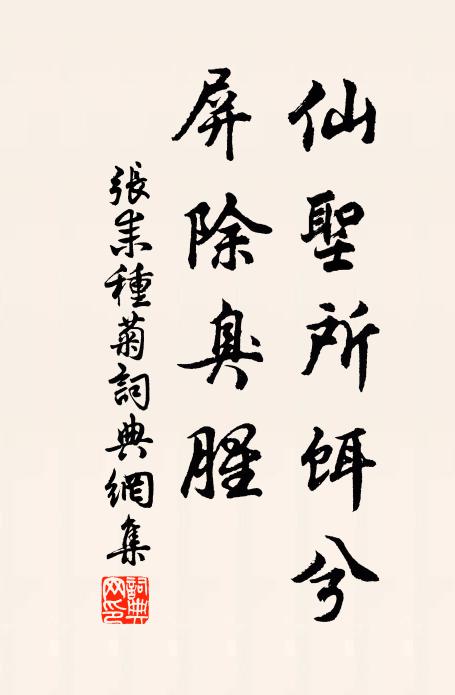 仙聖所餌兮
屏除臭腥
張耒種菊詞典網集
詞典网印